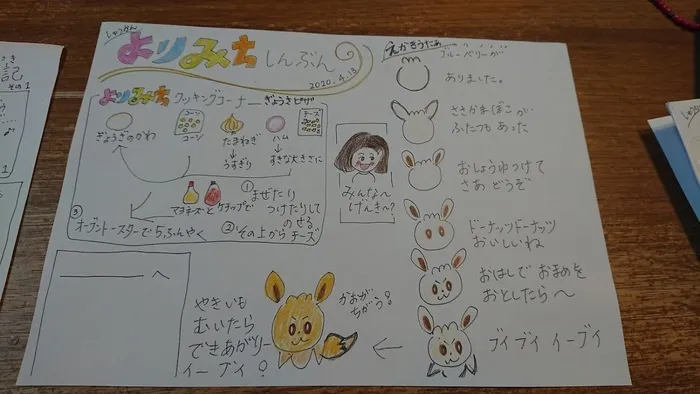 しゅうかん
よりみち しんぶん
2020.4.13
よりみち クッキングコーナー ぎょうざピザ
ぎょうざのかわ
コーン
コーン
たまねぎ
↓
うすぎり
ハム
↓
すきな大きさに
チーズ
マヨネーズとケチャップで
① まぜたり
つけたりして
のせる
② その上からチーズ
③ オーブントースターで5ふんやく
みんな〜
げんき〜?
へ
えかきうたあ
ブルーベリーが
ありました。
ささかまぼこが
ふたつもあった
おしょうゆつけて
さあどうぞ
ドーナッツドーナッツ
おいしいね
おはしでおまめを
おとしたら〜
ブイブイ イーブイ
←
かおが
ちがう?
やきいも
むいたら
できあがりー
イーブイ!
記
その1